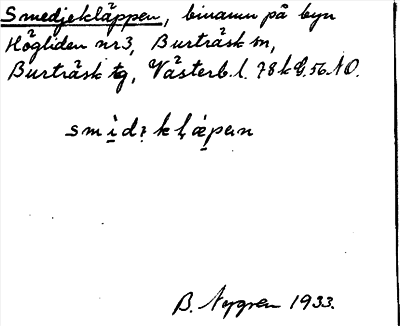 Smedjekläppen, binamn på byn
Högliden nr 3, Burträsk sn,
Burträsk tg, Västerb. l. 78 k G. 56 NO.
smìdɂ kḷæ̀pen
B. Nygren 1933.